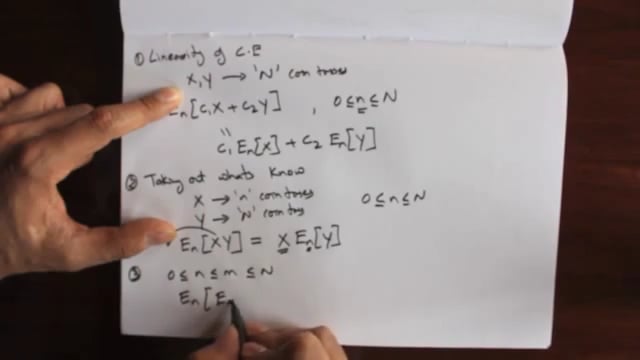 ① Linearity of C.E
X, Y → 'N' coin tosses
En[c1X + c2Y] , 0 ≤ n ≤ N
"
c1 En[X] + c2 En[Y]
② Taking out whats Know
X → 'n' coin tosses 0 ≤ n ≤ N
Y → 'N' coin tos
En[XY] = X En[Y]
③ 0 ≤ n ≤ m ≤ N
En[E